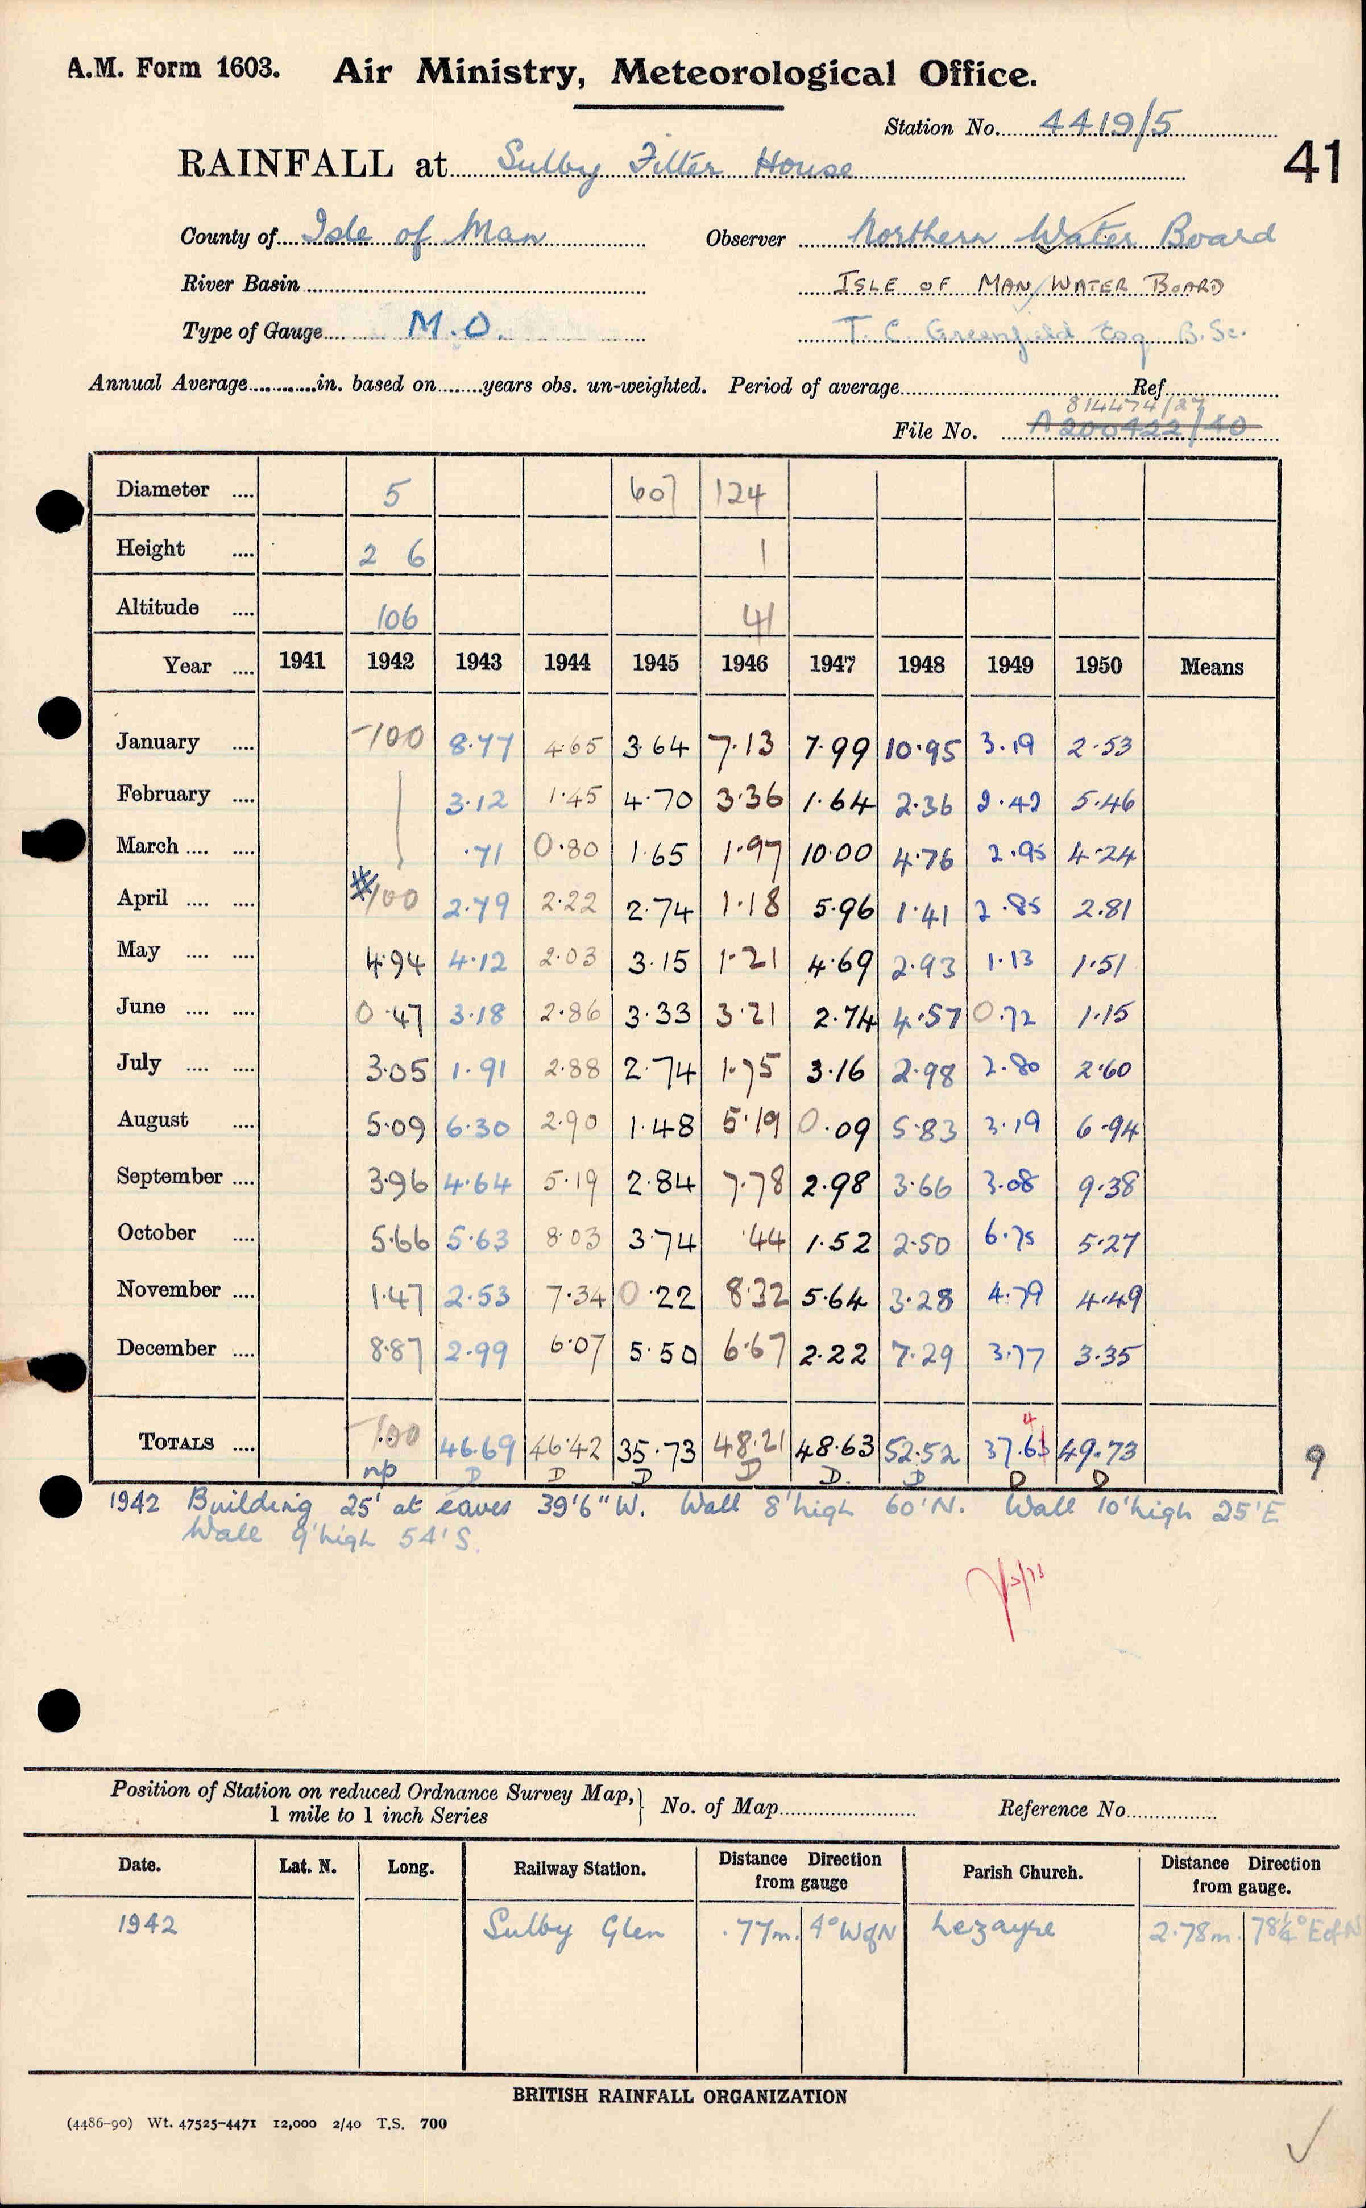 A.M. Form 1603. Air Ministry, Meteorological Office.
Station No. 4419/5
41
RAINFALL at Sulby Filter House
County of Isle of Man Observer Northern Water Board
River Basin ISLE OF MAN WATER BOARD
Type of Gauge M.O. T. C. Greenfield Esq B.Sc.
Annual Average in. based on years obs. un-weighted. Period of average Ref
814474/27
File No. A200422/40
Diameter 5 607 124
Height 2 6 1
Altitude 106 41
Year 1941 1942 1943 1944 1945 1946 1947 1948 1949 1950 Means
January -100 8.77 4.65 3.64 7.13 7.99 10.95 3.19 2.53
February 3.12 1.45 4.70 3.36 1.64 2.36 2.42 5.46
March .71 0.80 1.65 1.97 10.00 4.76 2.95 4.24
April -100 2.79 2.22 2.74 1.18 5.96 1.41 2.85 2.81
May 4.94 4.12 2.03 3.15 1.21 4.69 2.93 1.13 1.51
June 0.47 3.18 2.86 3.33 3.21 2.74 4.57 0.72 1.15
July 3.05 1.91 2.88 2.74 1.75 3.16 2.98 2.80 2.60
August 5.09 6.30 2.90 1.48 5.19 0.09 5.83 3.19 6.94
September 3.96 4.64 5.19 2.84 7.78 2.98 3.66 3.08 9.38
October 5.66 5.63 8.03 3.74 .44 1.52 2.50 6.75 5.27
November 1.47 2.53 7.34 0.22 8.32 5.64 3.28 4.79 4.49
December 8.87 2.99 6.07 5.50 6.67 2.22 7.29 3.77 3.35
4
TOTALS -100 46.69 46.42 35.73 48.21 48.63 52.52 37.63 49.73 9
np D D D D D. D D D
1942 Building 25' at eaves 39'6" W. Wall 8' high 60' N. Wall 10' high 25' E
Wall 9' high 54' S.
Position of Station on reduced Ordnance Survey Map,
1 mile to 1 inch Series No. of Map Reference No.
Date. Lat. N. Long. Railway Station. Distance Direction from gauge Parish Church. Distance Direction from gauge.
1942 Sulby Glen .77m. 4° W of N Lezayre 2.78m. 78¼° E of N
BRITISH RAINFALL ORGANIZATION
(4486-90) Wt. 47525-4471 12,000 2/40 T.S. 700